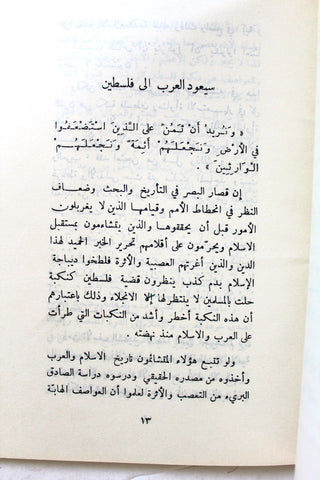 سيعود العرب الى فلسطين
« وَنُريدُ أَنْ نَمُنَّ على الذينَ استُضعَفُوا
في الأرْضِ وَنَجعَلَهُم أئِمةً وَنَجعَلَهُم
الوَارِثِينَ » .
إن قصار البصر في التأريخ والبحث وضعاف
النظر في انحطاط الأمم وقيامها والذين لا يغربلون
الأمور قبل أن يحققوها والذين يتشاءمون بمستقبل
الاسلام ويحرّمون على أقلامهم تحرير الخير الحميد لهذا
الدين والذين أغرتهم العصبية والأثرة فلطخوا ديباجة
الإسلام بدم كذب ينظرون قضية فلسطين كنكبة
حلت بالمسلمين لا ينتظر لها إلا الانجلاء وذلك باعتبارهم
أن هذه النكبة أخطر وأشد من النكبات التي طرأت
على العرب والاسلام منذ نهضته .
ولو تتبع هؤلاء المتشائمون تاريخ الاسلام والعرب
وأخذوه من مصدره الحقيقي ودرسوه دراسة الصادق
البريء من التعصب والأثرة لعلموا أن العواصف الهابّة
١٣